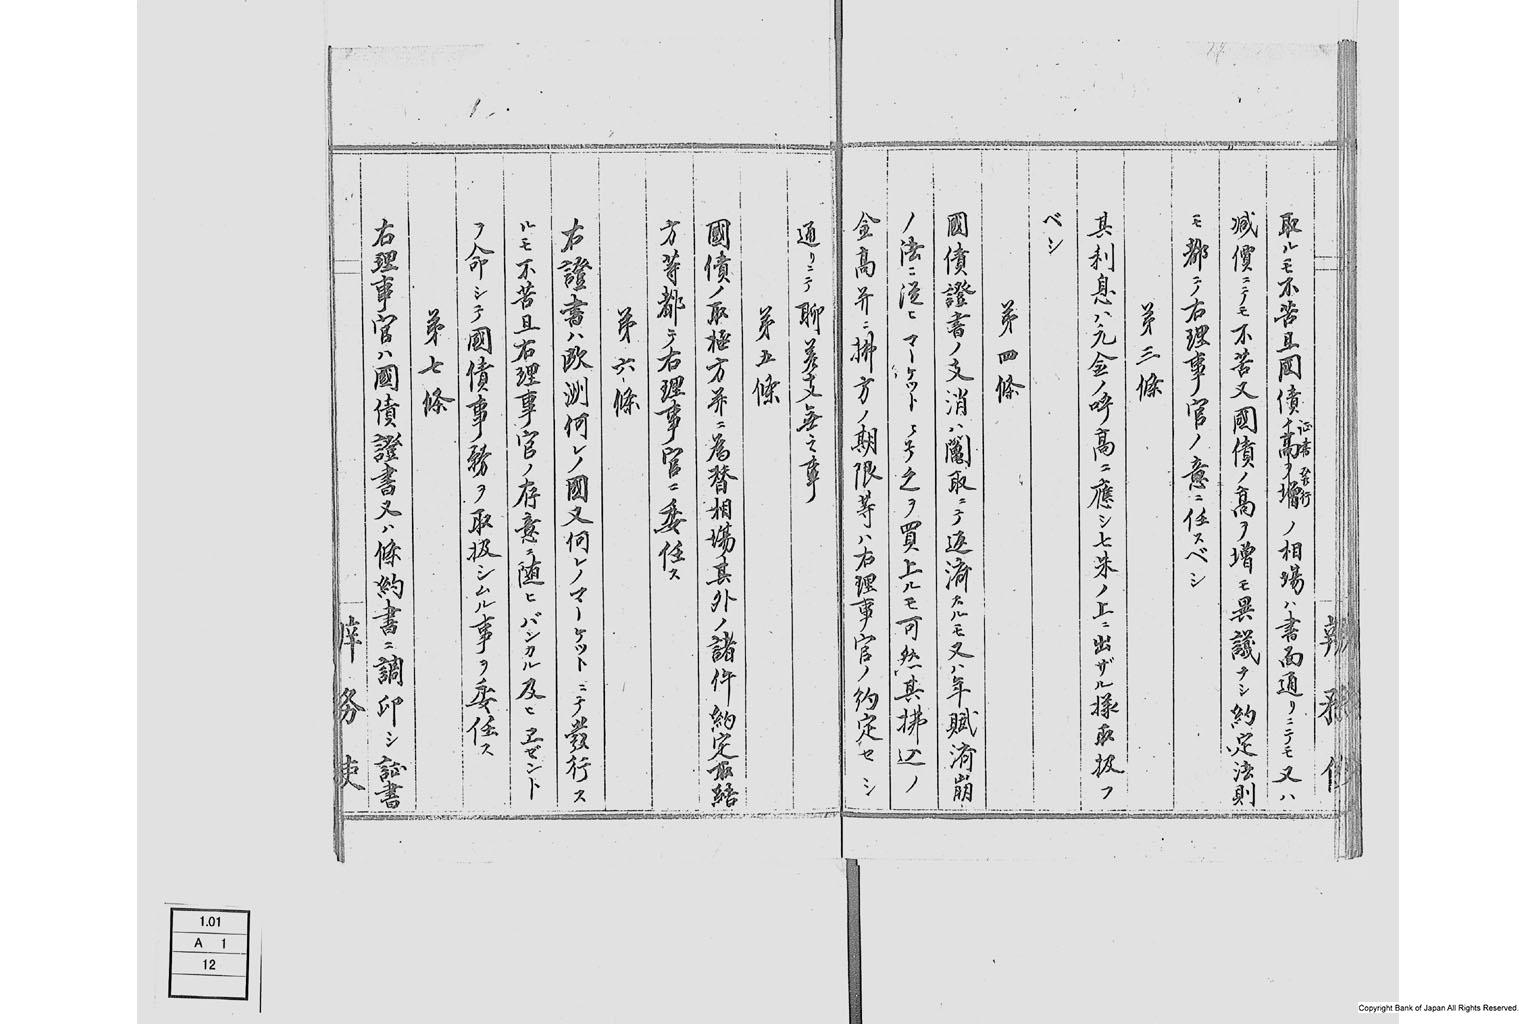 取ルモ不苦且国債ノ高ヲ増ノ相場ハ書面通リニテモ又ハ
証書発行
減價ニテモ不苦又國債ノ高ヲ増モ異議ナシ約定法則
モ都テ右理事官ノ意ニ任スベシ
第三條
其利息ハ元金ノ呼高ニ應シ七朱ノ上ニ出ザル様取扱フ
ベシ
第四條
國債證書ノ支消ハ鬮取ニテ返済スルモ又ハ年賦済崩
ノ法ニ從ヒマーケットニテ之ヲ買上ルモ可然其拂込ノ
金高并ニ拂方ノ期限等ハ右理事官ノ約定セシ
通リニテ聊差支無之事
第五條
國債ノ取極方并ニ為替相場其外ノ諸件約定取結
方等都テ右理事官ニ委任ス
第六條
右證書ハ欧洲何レノ國又何レノマーケットニテ發行ス
ルモ不苦且右理事官ノ存意ニ随ヒバンカル及ヒエゼント
ヲ命シテ國債事務ヲ取扱シムル事ヲ委任ス
第七條
右理事官ハ國債證書又ハ條約書ニ調印シ証書
1.01
A 1
12
Copyright Bank of Japan All Rights Reserved.